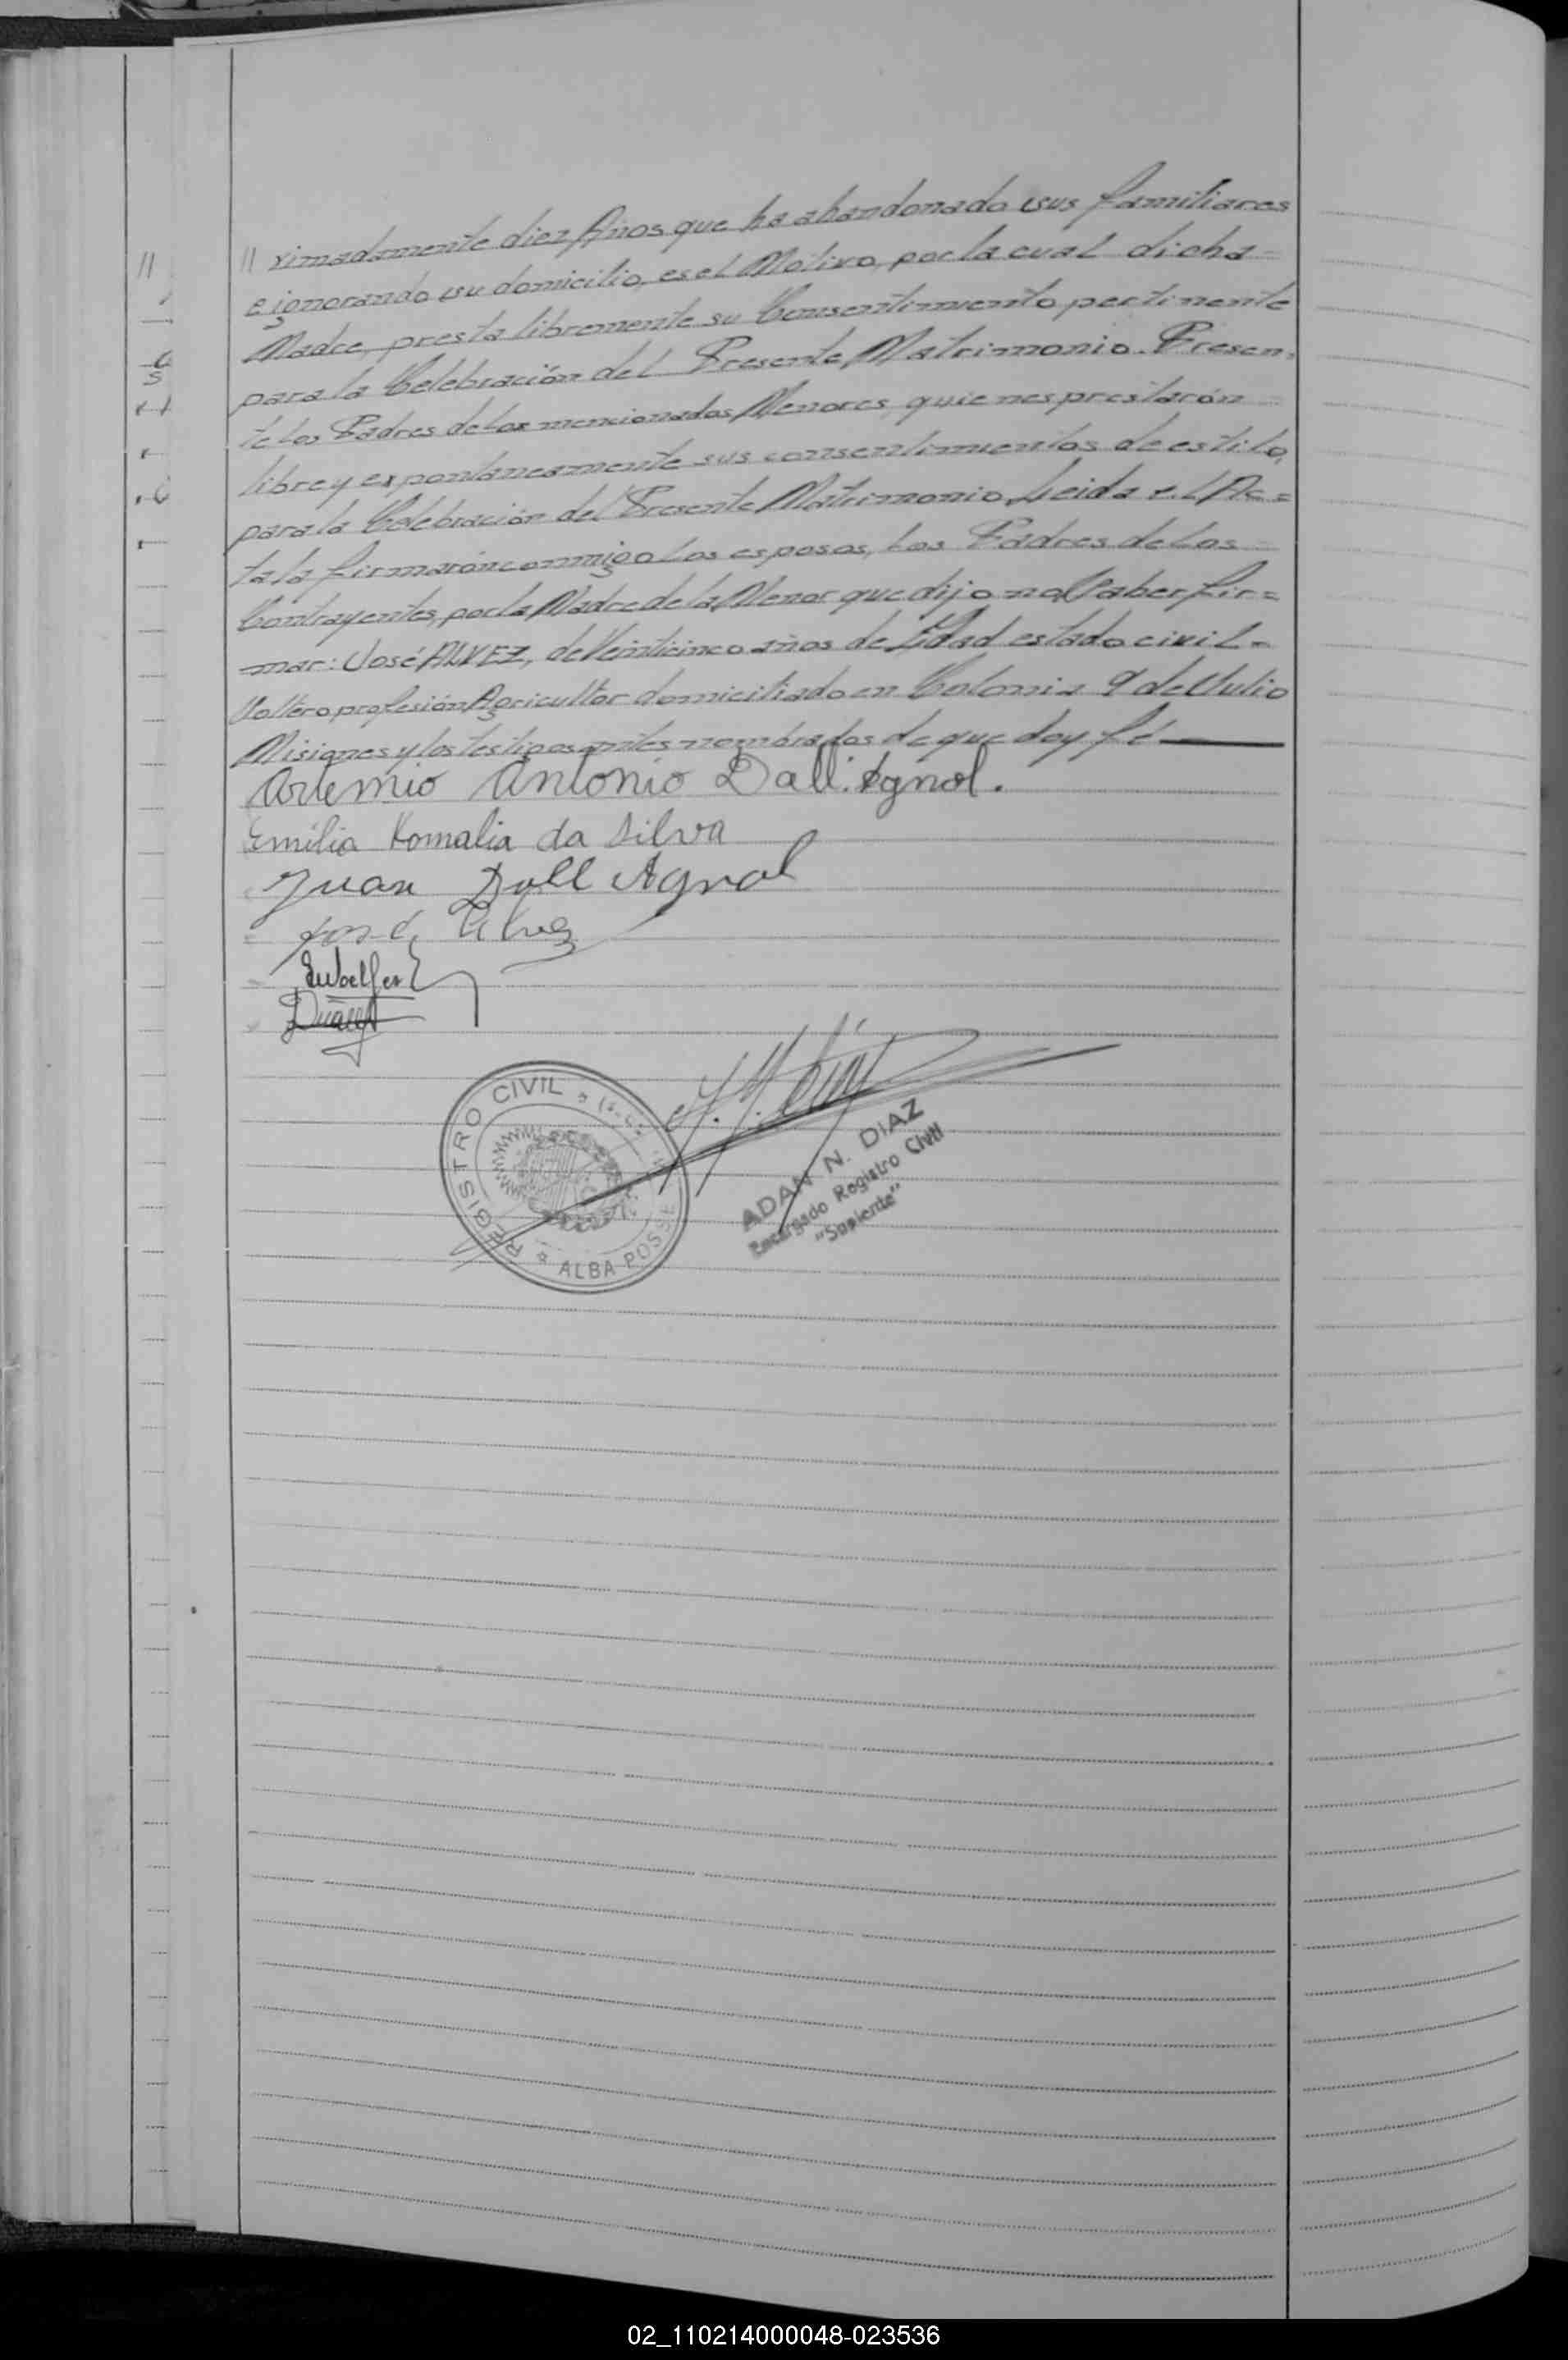 // ximadamente diez Años que ha abandonado sus familiares
e ignorando su domicilio, es el Motivo, por la cual dicha =
Madre, presta libremente su Consentimiento pertinente
para la Celebración del Presente Matrimonio. Presen=
te los Padres de los mencionados Menores, quienes prestarón
libre y expontáneamente sus consentimientos de estilo,
para la Celebración del Presente Matrimonio. Leida el Ac=
ta la firmarón conmigo los esposos, Los Padres de los =
Contrayentes, por la Madre de la Menor que dijo no Saber fir=
mar: José ALVEZ, de Veinticinco años de Edad estado civil =
Soltero profesión Agricultor domiciliado en Colonia 9 de Julio
Misiones y los testigos antes nombrados de que doy fé
Artemio Antonio Dall'Agnol.
Emilia Komalia da Silva
Juan Dall Agnol
José Alvez
REGISTRO CIVIL
ALBA POSSE
ADAN N. DIAZ
Encargado Registro Civil
"Suplente"
02_110214000048-023536